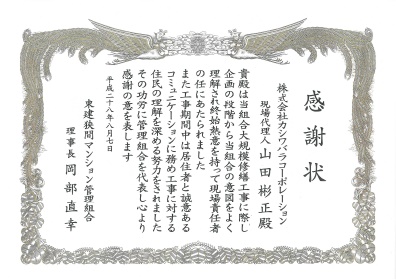 感謝状
株式会社カシワバラコーポレーション
現場代理人 山田彬正殿
貴殿は当組合大規模修繕工事に際し
企画の段階から当組合の意図をよく
理解され終始熱意を持って現場責任者
の任にあたられました
また工事期間中は居住者と誠意ある
コミュニケーションに務め工事に対する
住民の理解を深める努力をされました
その功労に管理組合を代表し心より
感謝の意を表します
平成二十八年八月七日
東建狭間マンション管理組合
理事長 岡部直幸